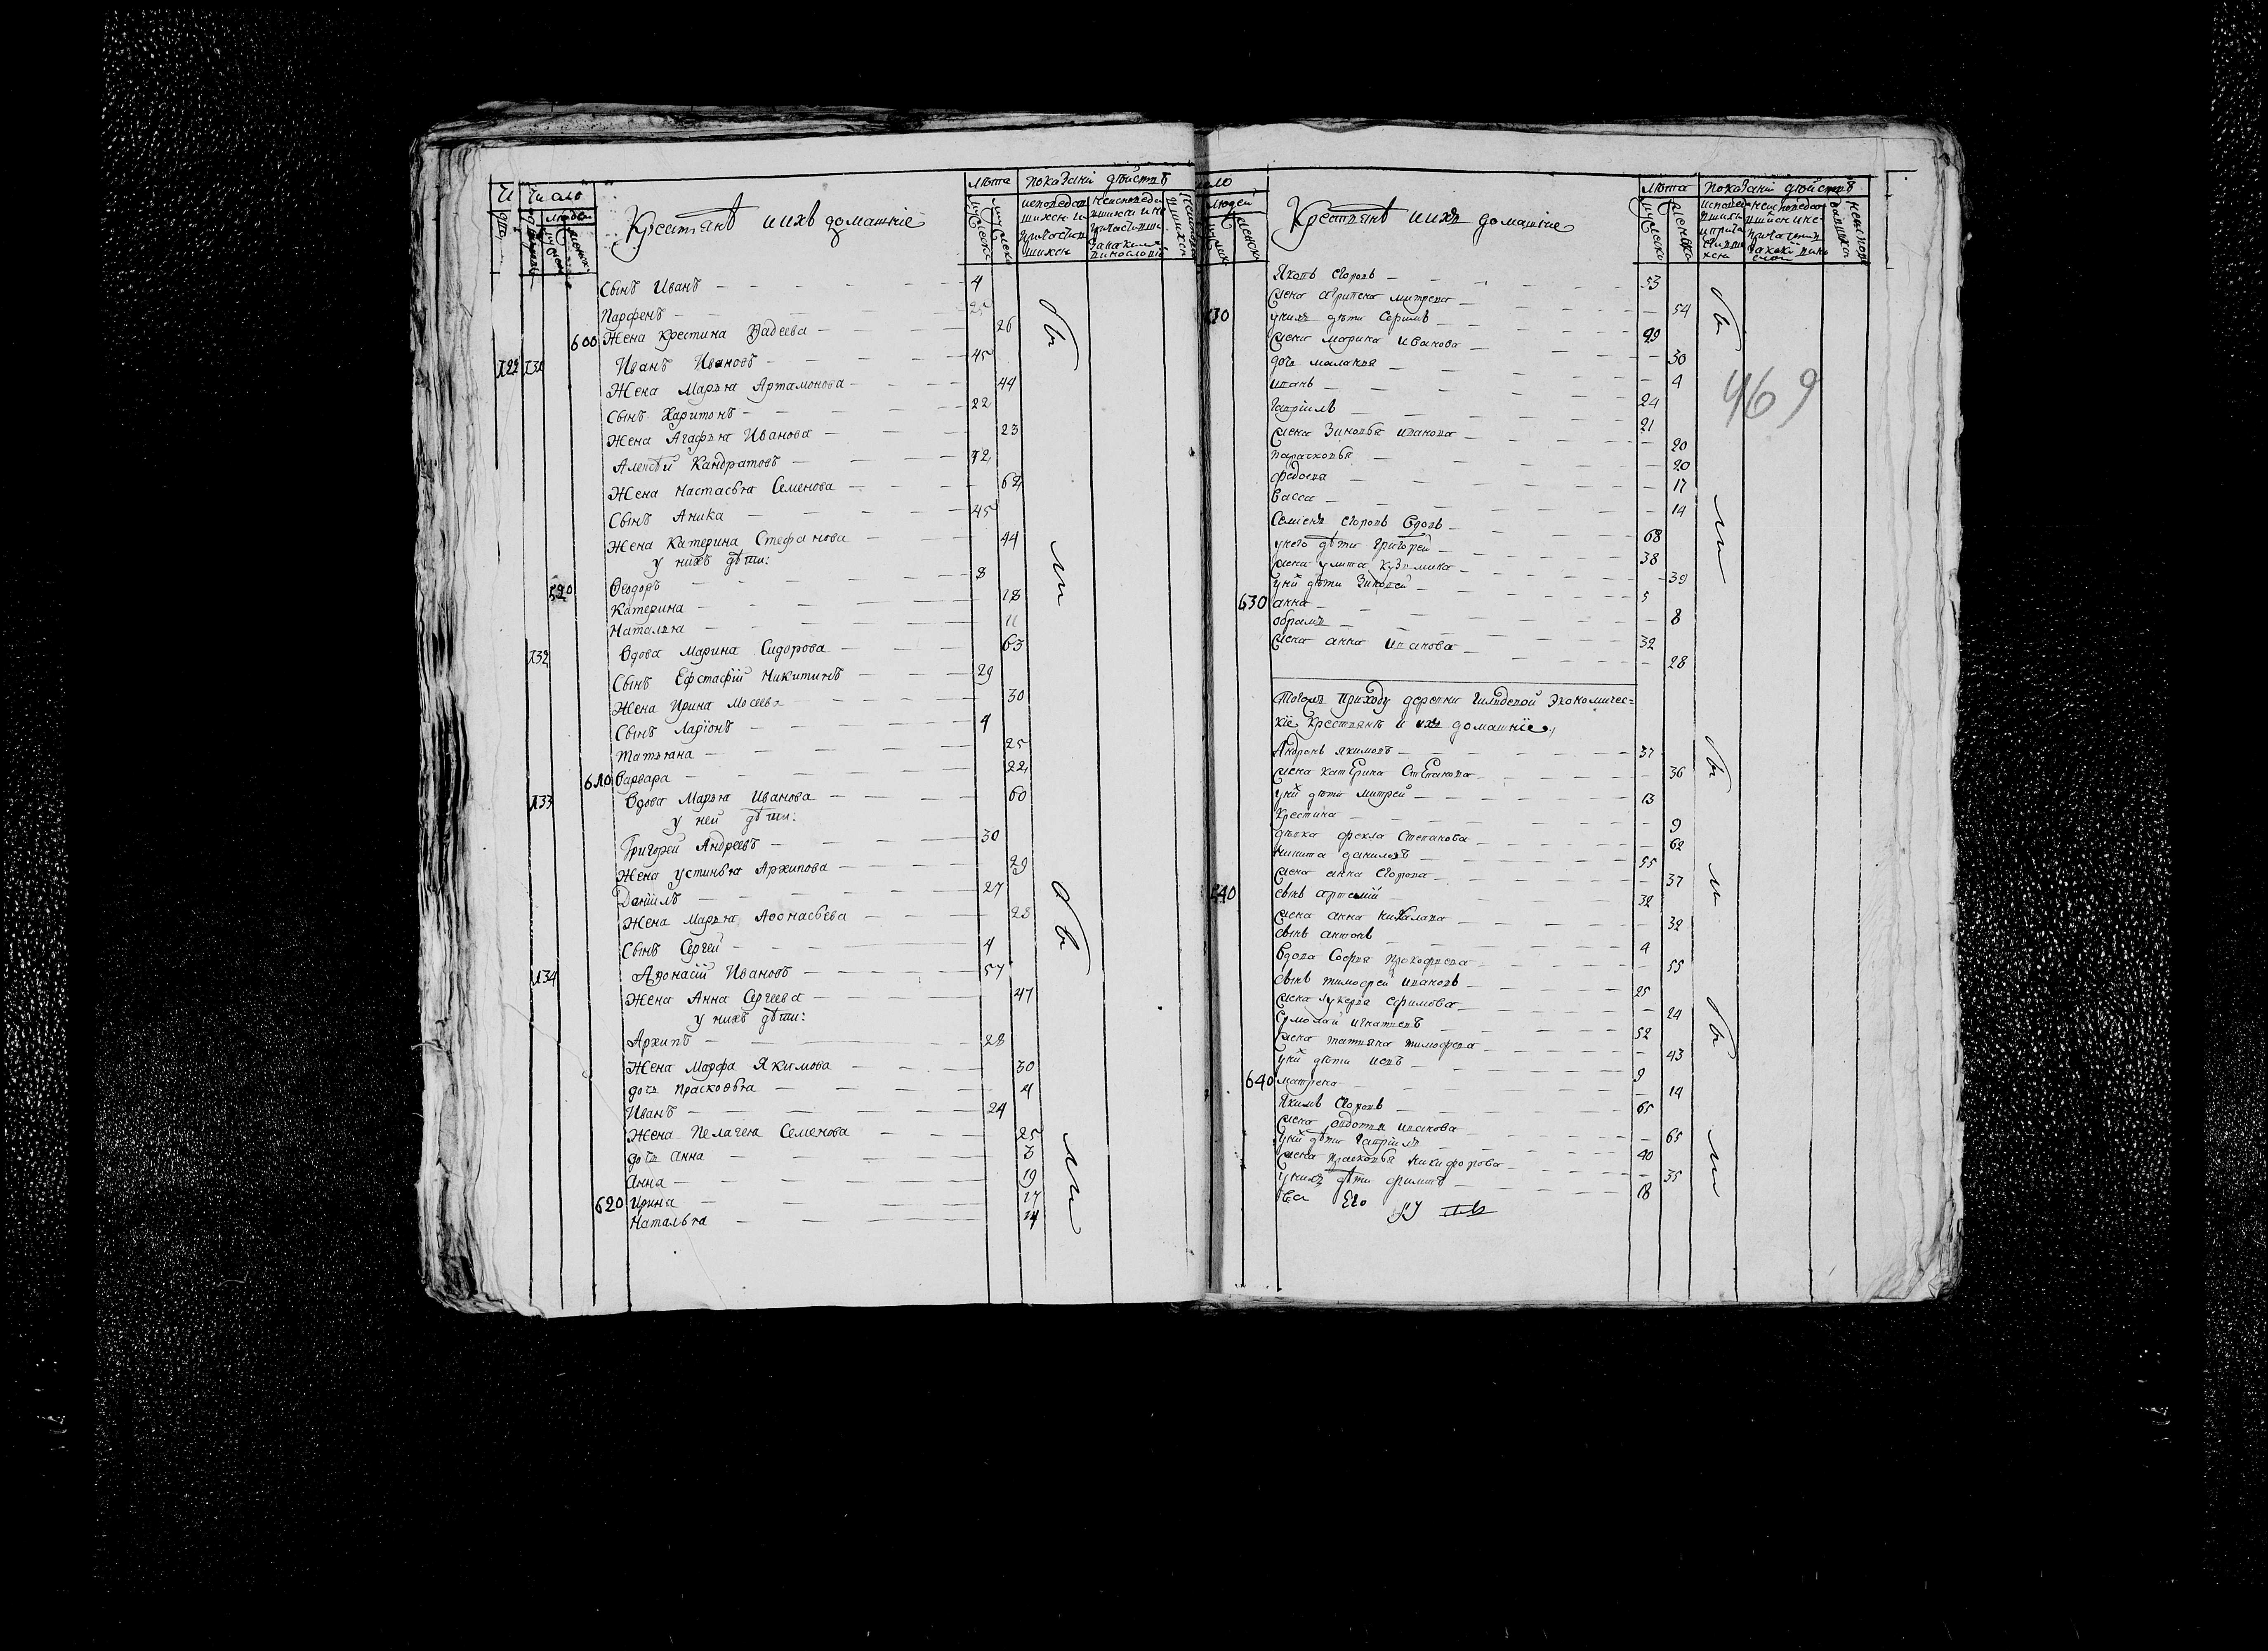 Число
Люден
Крестьянѣ и ихъ домашніе
лѣта
показаніи дѣйствъ
Сынъ Иванъ — 4
Парфенъ — 25
600 Жена Крестина Фадеева — 26
Иванъ Ивановъ — 45
Жена Марья Артамонова — 44
Сынъ Харитонъ — 22
Жена Агафья Иванова — 23
Алексѣй Кандратовъ — 72
Жена Настасья Семенова — 62
Сынъ Аника — 45
Жена Катерина Стефанова — 44
у нихъ дѣти:
520 Ѳеодоръ — 8
Катерина — 18
Наталья — 11
132 Вдова Марина Сидорова — 63
Сынъ Ефстафій Никитинъ — 29
Жена Ирина Мосеева — 30
Сынъ Ларіонъ — 4
Татьяна — 25
610 Варвара — 22
133 Вдова Марья Иванова — 60
у ней дѣти:
Григорей Андреевъ — 30
Жена Устинья Архипова — 29
Даніилъ — 27
Жена Марья Аѳонасьева — 28
Сынъ Сергей — 4
134 Аѳонасій Ивановъ — 57
Жена Анна Сергеева — 47
у нихъ дѣти:
Архипъ — 28
Жена Марфа Якимова — 30
дочь Прасковья — 4
Иванъ — 24
Жена Пелагея Семенова — 25
дочь Анна — 3
Анна — 19
620 Ирина — 17
Наталья — 14
были
были
людей
Крестьянѣ и ихъ домашніе
лѣта
показаніи дѣйствъ
Яковъ Егоровъ — 53
жена агрипена митрева — 54
у нихъ дѣти Сергий — 29
жена марина иванова — 30
дочь маланья — 4
иванъ — 24
гаврiилъ — 21
жена Зиновья иванова — 20
парасковья — 20
федосья — 17
Васса — 14
Семіонъ егоровъ Вдовъ — 68
у него дѣти григорей — 38
жена улита кузьмина — 39
у ни дѣти Зиновей — 5
630 анна — 8
обрамъ — 32
жена анна иванова — 28
469
Тогожъ Приходу деревни Экономичес=
кіе Крестьянѣ и ихъ домашніе
Андронъ якимовъ — 37
жена катерина Степанова — 36
у ни дѣти митрей — 13
Крестина — 9
дѣвка фекла Степанова — 62
никита даниловъ — 55
жена анна Егорова — 37
сынъ артемій — 32
жена анна — 32
сынъ антонъ — 4
Вдова Софья Прокофьева — 55
сынъ тимофей ивановъ — 25
жена лукерья ефимова — 24
Ермолай игнатьевъ — 52
жена татьяна тимофева — 43
у ни дѣти иевъ — 9
640 матрена — 14
Якимъ Егоровъ — 65
жена овдотья иванова — 65
у ни дѣти гаврiилъ — 40
жена Прасковья никифорова — 35
у нихъ дѣти филипъ — 18
были
были